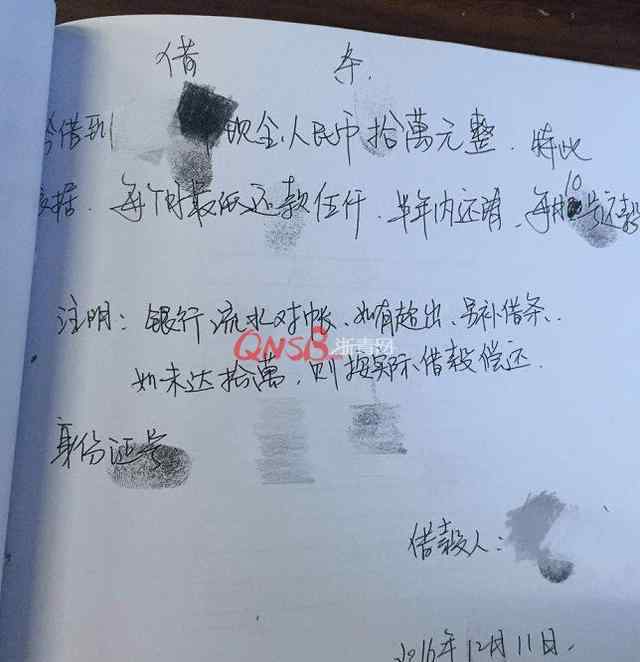 借条.
今借到 现金人民币拾萬元整. 特此
立据. 每个月最低还款伍仟. 半年内还清、每月10号还款
注明: 银行流水对帐、如有超出、另补借条、
QNSB 浙青网
如未达拾萬, 则按实际借款偿还.
身份证号
借款人:
2016年12月11日.